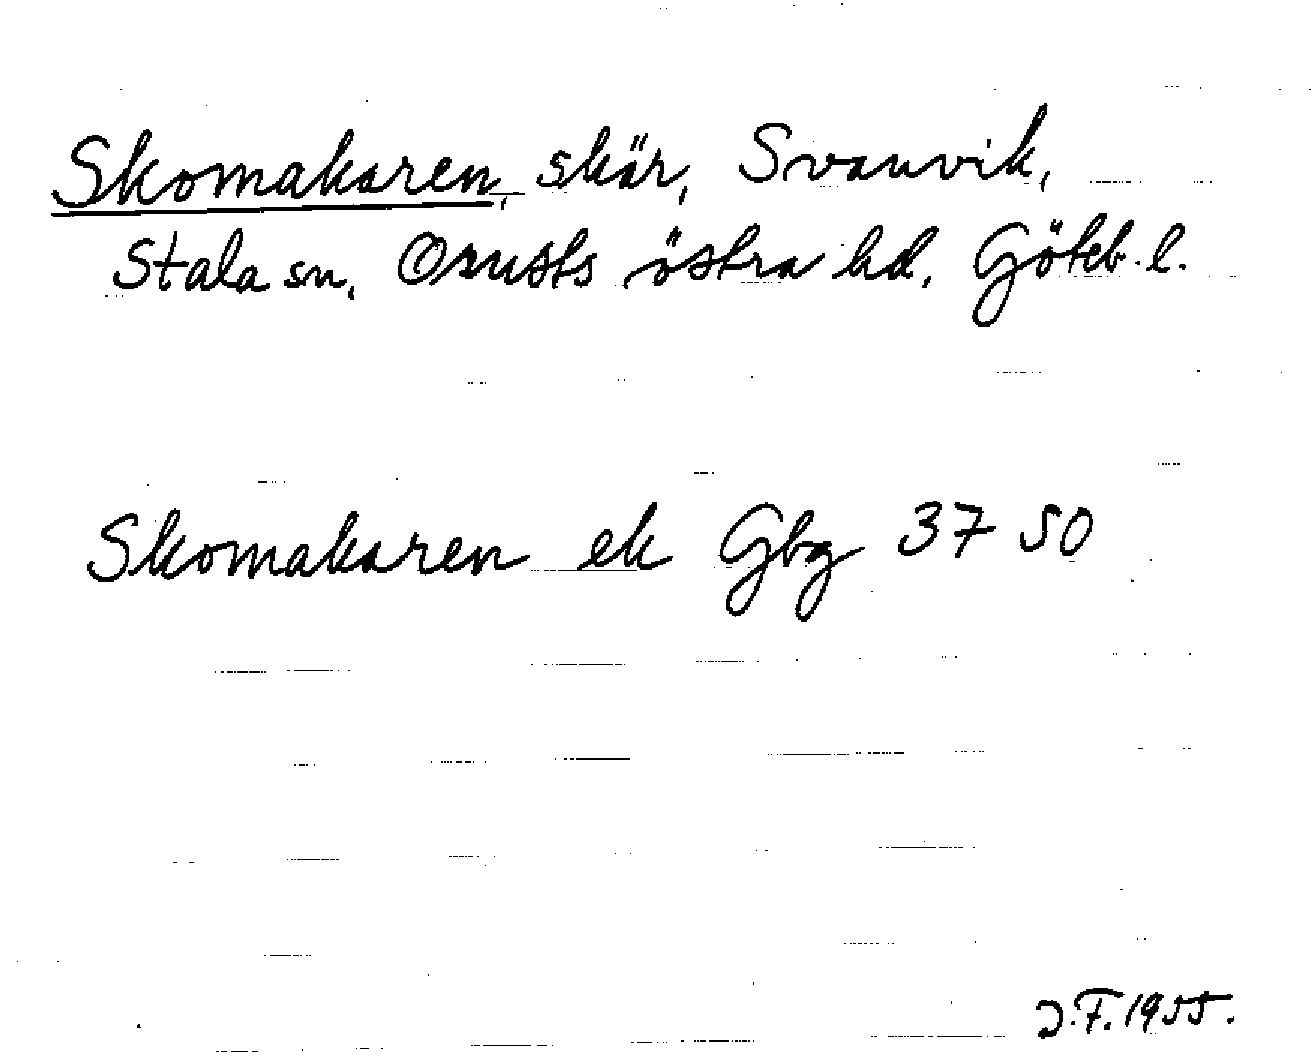 Skomakaren, skär, Svanvik,
Stala sn, Orusts östra hd, Göteb. l.
Skomakaren ek Gbg 37 50
J.F. 1955.